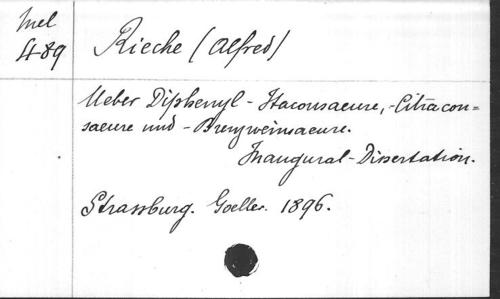 Mel
489
Rieche (Alfred)
Ueber Diphenyl-Itaconsaeure, -Citracon=
saeure und -Brenzweinsaeure.
Inaugural-Dissertation.
Strassburg. Goeller. 1896.